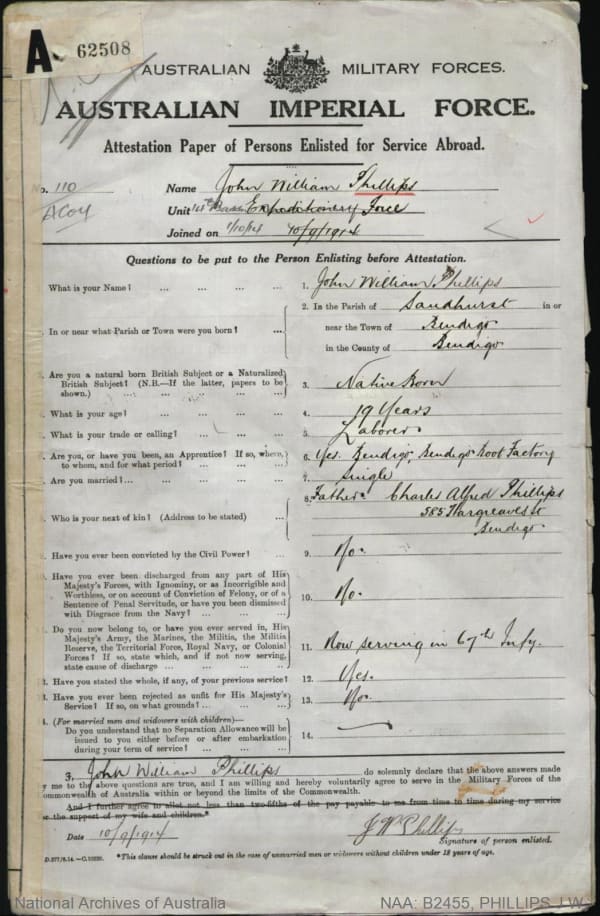 A 62508
AUSTRALIAN MILITARY FORCES.
AUSTRALIAN IMPERIAL FORCE.
Attestation Paper of Persons Enlisted for Service Abroad.
No. 110 Name John William Phillips
A Coy Unit 14th Expeditionary Force
Joined on 1/10/14 10/9/1914
Questions to be put to the Person Enlisting before Attestation.
What is your Name? ... ... ... ... 1. John William Phillips
2. In the Parish of Sandhurst in or
In or near what Parish or Town were you born? ... near the Town of Bendigo
in the County of Bendigo
. Are you a natural born British Subject or a Naturalized
British Subject? (N.B.—If the latter, papers to be
shown.) ... ... ... ... ... 3. Native Born
. What is your age? ... ... ... ... 4. 19 Years
. What is your trade or calling? ... ... ... 5. Laborer
. Are you, or have you been, an Apprentice? If so, where, 6. Yes. Bendigo, Bendigo Boot Factory
to whom, and for what period? ... ... ...
. Are you married? ... ... ... ... 7. Single
8. Father Charles Alfred Phillips
. Who is your next of kin? (Address to be stated) ... 585 Hargreaves St
Bendigo
. Have you ever been convicted by the Civil Power? ... 9. No.
. Have you ever been discharged from any part of His
Majesty's Forces, with Ignominy, or as Incorrigible and
Worthless, or on account of Conviction of Felony, or of a
Sentence of Penal Servitude, or have you been dismissed
with Disgrace from the Navy? ... ... ... 10. No.
. Do you now belong to, or have you ever served in, His
Majesty's Army, the Marines, the Militia, the Militia
Reserve, the Territorial Force, Royal Navy, or Colonial
Forces? If so, state which, and if not now serving,
state cause of discharge ... ... ... ... 11. Now serving in 67th Infy.
2. Have you stated the whole, if any, of your previous service? 12. Yes.
3. Have you ever been rejected as unfit for His Majesty's
Service? If so, on what grounds? ... ... ... 13. No.
4. (For married men and widowers with children)—
Do you understand that no Separation Allowance will be
issued to you either before or after embarkation
during your term of service? ... ... ... 14. —
I, John William Phillips do solemnly declare that the above answers made
by me to the above questions are true, and I am willing and hereby voluntarily agree to serve in the Military Forces of the
Commonwealth of Australia within or beyond the limits of the Commonwealth.
And I further agree to allot not less than two-fifths of the pay payable to me from time to time during my service
for the support of my wife and children.*
Date 10/9/1914 J W Phillips
Signature of person enlisted.
D.277/8.14.—C.10229. *This clause should be struck out in the case of unmarried men or widowers without children under 18 years of age.
National Archives of Australia NAA: B2455, PHILLIPS J W